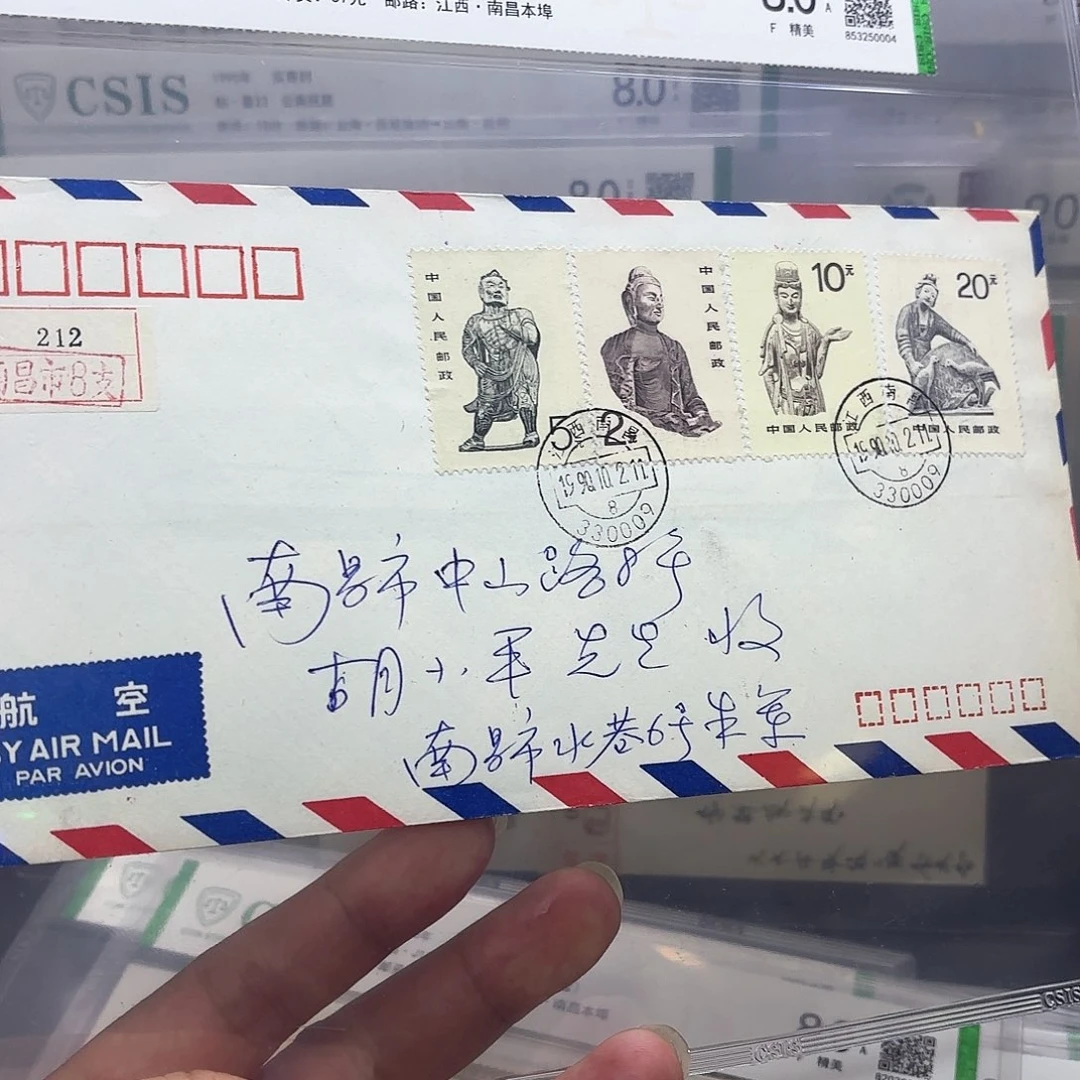 邮路：江西·南昌本埠
8.0 A
F 精美
853250004
CSIS
8.0
8.0
中国人民邮政
中国人民邮政
10元
中国人民邮政
20元
中国人民邮政
212
南昌市8支
江西南昌
1990.10.2.11
8
330009
江西南昌
1990.10.2.11
8
330009
南昌市中山路8号
胡小军先生 收
南昌市水巷6号朱
航空
BY AIR MAIL
PAR AVION
南昌本埠
精美
CSIS
CSIS